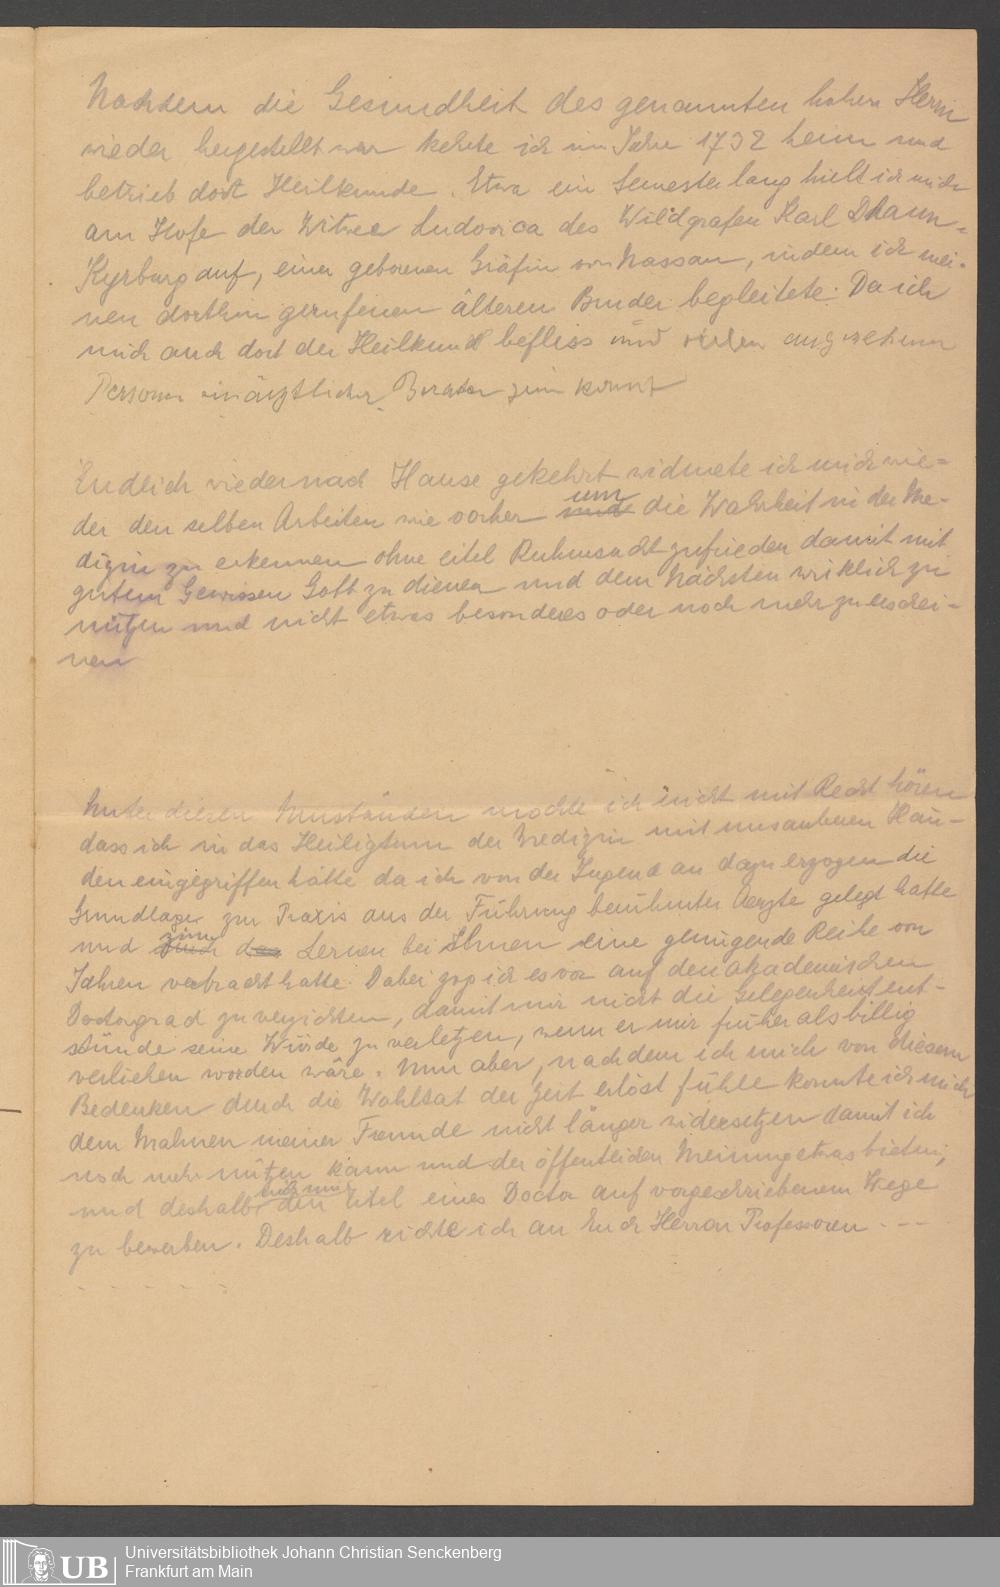 Nachdem die Gesundheit des genannten hohen Herrn
wieder hergestellt war kehrte ich im Jahre 1732 heim und
betrieb dort Heilkunde. Etwa ein Semester lang hielt ich mich
am Hofe der Witwe Ludovica des Wildgrafen Karl Dhaun-
Kyrburg auf, einer geborenen Gräfin von Nassau, indem ich mei-
nen dorthin gerufenen älteren Bruder begleitete. Da ich
mich auch dort der Heilkund befliss und vielen angesehenen
Personen ein ärztlicher Berater sein konnte
Endlich wieder nach Hause gekehrt widmete ich mich wie-
der den selben Arbeiten wie vorher um die Wahrheit in der Me-
dizin zu erkennen ohne eitel Ruhmsucht zufrieden damit mit
gutem Gewissen Gott zu dienen und dem Nächsten wirklich zu
nützen und nicht etwas besonderes oder noch mehr zu erschei-
nen
Unter diesen Umständen mochte ich nicht mit Recht hören
dass ich in das Heiligtum der Medizin mit unsauberen Hän-
den eingegriffen hätte da ich von der Jugend an dazu erzogen die
Grundlagen zur Praxis aus der Führung berühmter Aerzte gelegt hatte
und zum Lernen bei Ihnen eine genügende Reihe von
Jahren verbracht hatte. Dabei zog ich es vor auf den akademischen
Doctorgrad zu verzichten, damit mir nicht die Gelegenheit ent-
stünde seine Würde zu verletzen, wenn er mir früher als billig
verliehen worden wäre. Nun aber, nachdem ich mich von diesem
Bedenken durch die Wohltat der Zeit erlöst fühle konnte ich mich
dem Mahnen meiner Freunde nicht länger widersetzen damit ich
noch mehr nützen kann und der öffentlichen Meinung etwas bieten,
und deshalb den Titel eines Doctor auf vorgeschriebenem Wege
zu bewerben. Deshalb richte ich an Euch Herren Professoren - - -
- - - - - -
UB
Universitätsbibliothek Johann Christian Senckenberg
Frankfurt am Main